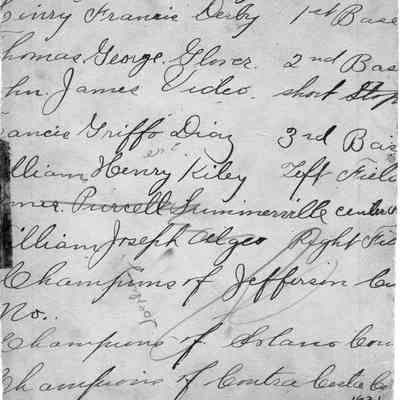 Henry Francis Derby 1st Base
homas. George. Glover. 2nd Bas
hn. James Video. short Stop
rancis Griffo Diaz 3rd Bas
illiam Henry Kiley Left Fiel
mer. Purcell Summerville center
illiam Joseph Algeo Right Fie
Champions of Jefferson Cu
No.
Champions of Solano Coun
Champions of Contra Costa Co